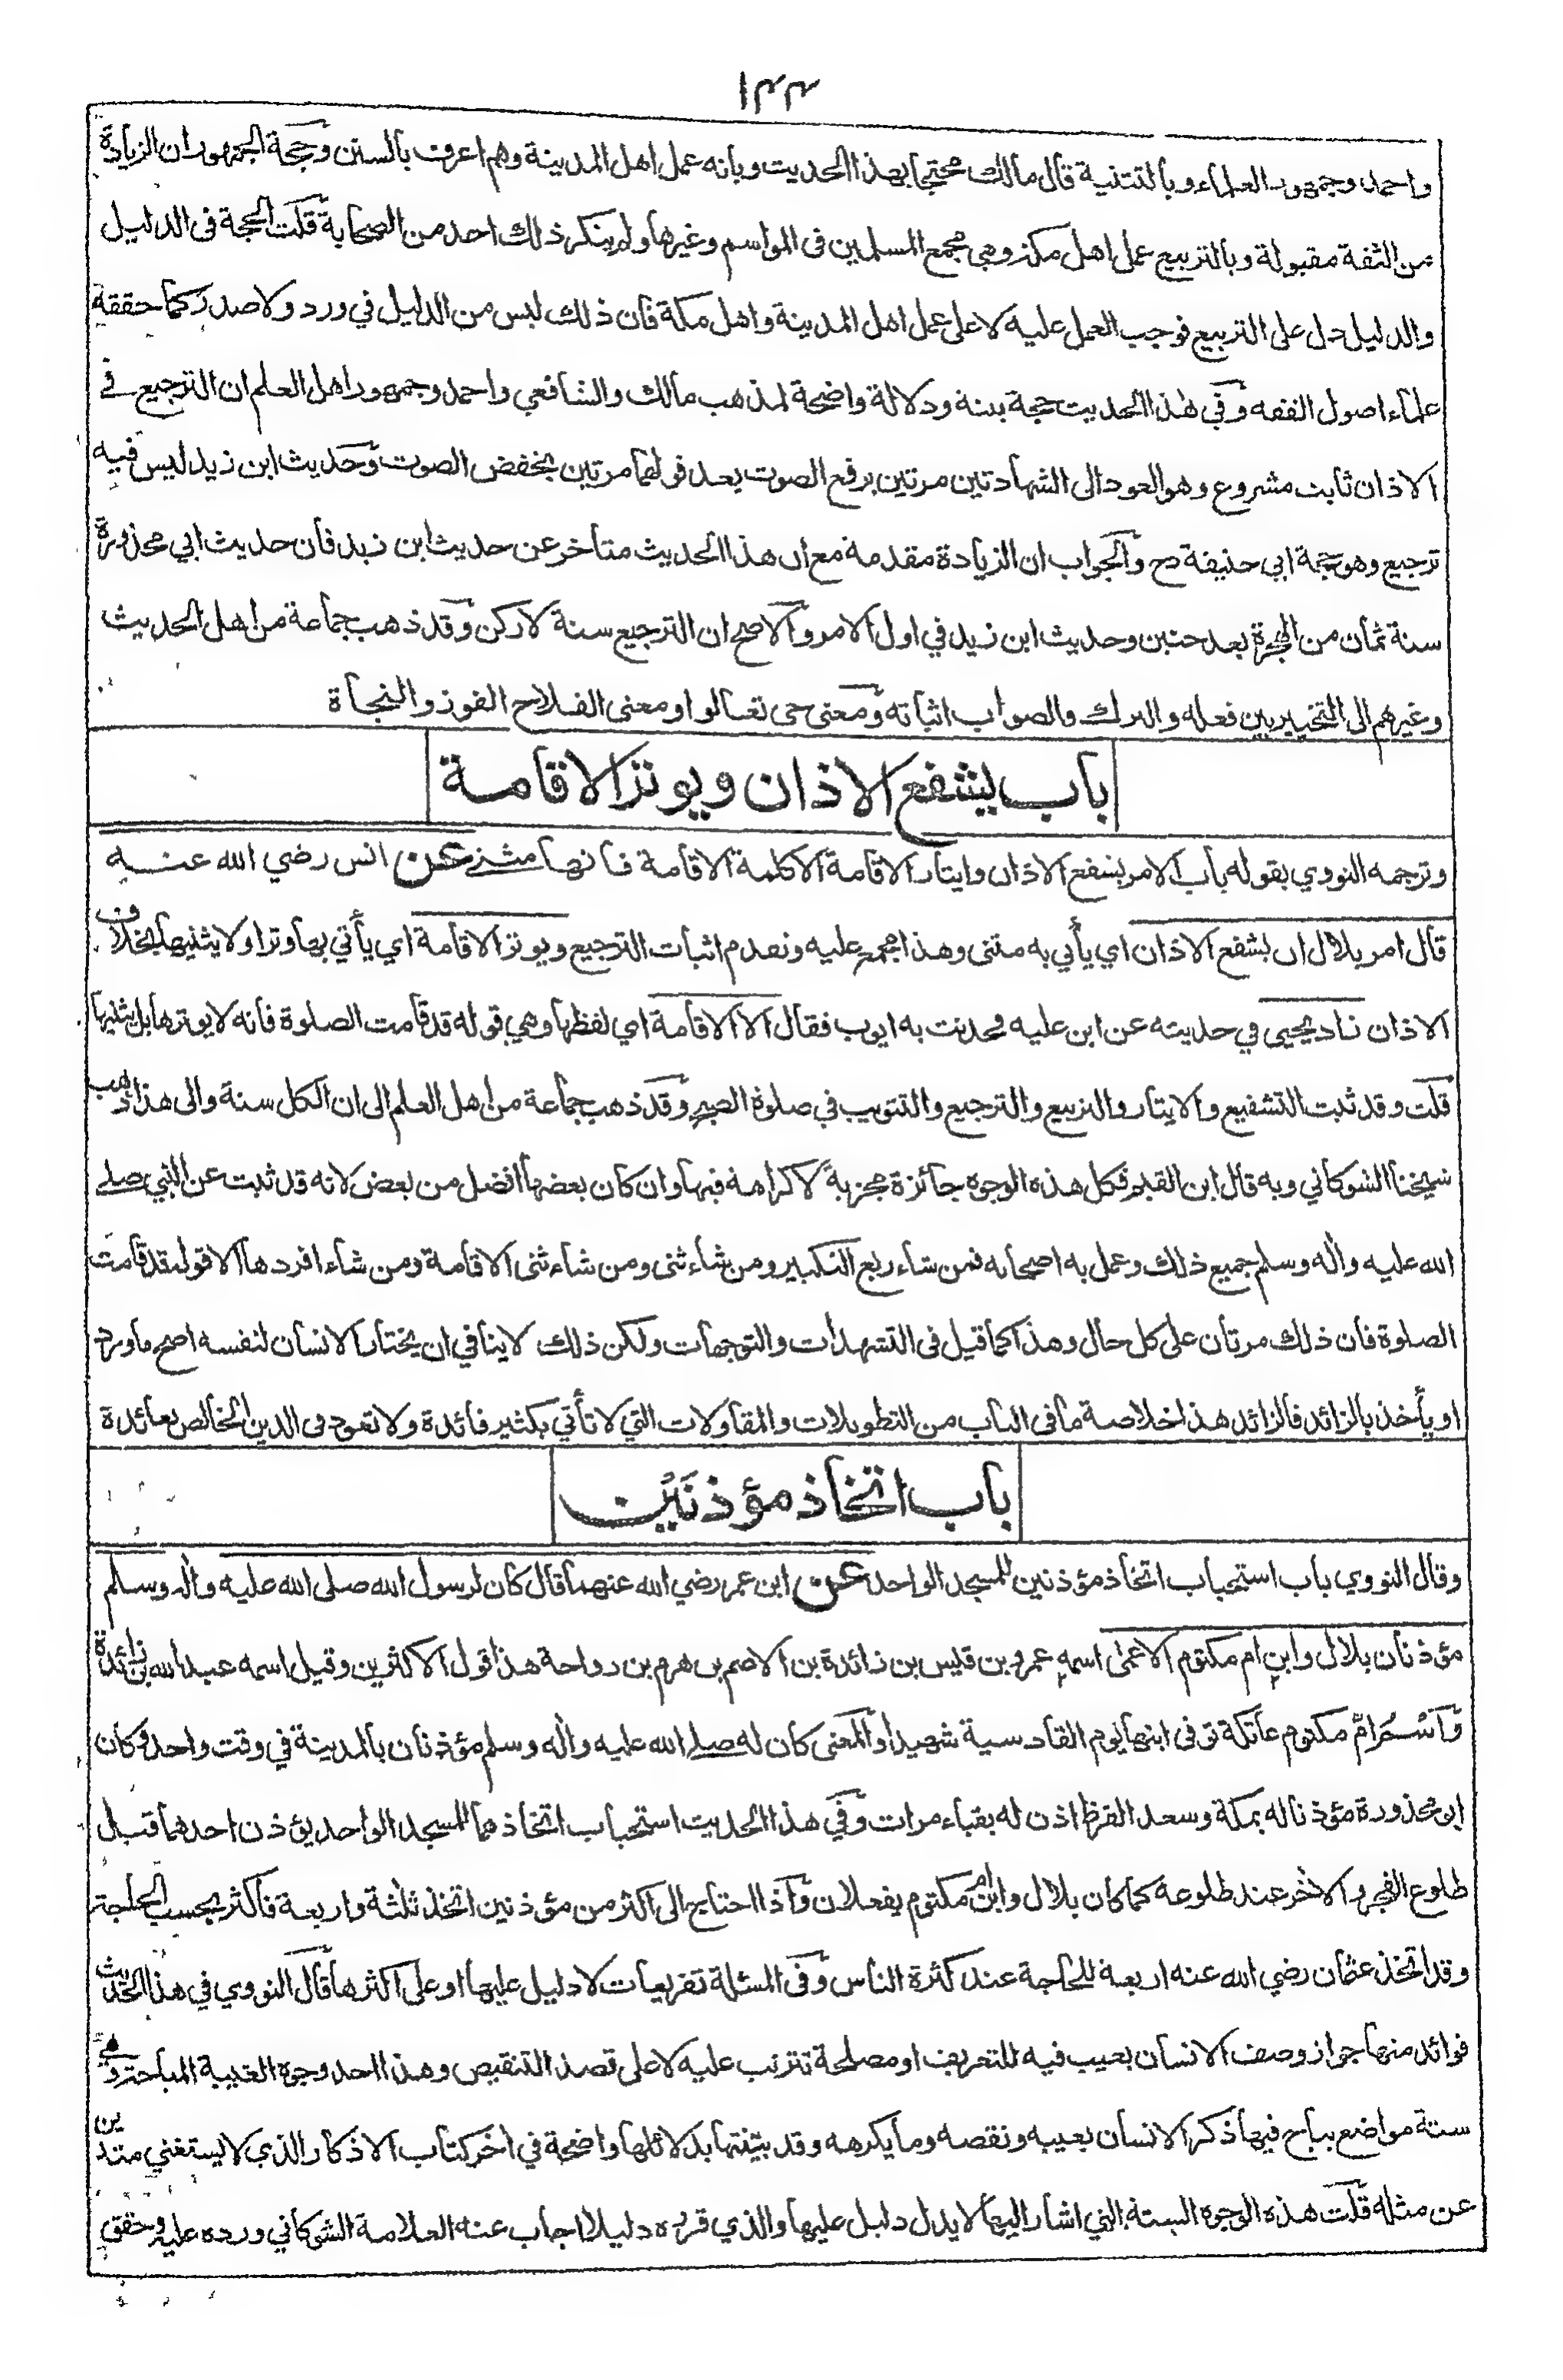 ١٣٣
واحمد وجمهور العلماء وبالتثنية قال مالك محتجا بهذا الحديث وبانه عمل اهل المدينة وهم اعرف بالسنن وحجة الجمهور ان الزيادة
من الثقة مقبولة وبالتربيع عمل اهل مكة وهي مجمع المسلمين فى المواسم وغيرها ولم ينكر ذلك احد من الصحابة قلت الحجة فى الدليل
والدليل دل على التربيع فوجب العمل عليه لا على عمل اهل المدينة واهل مكة فان ذلك ليس من الدليل في ورد ولا صدر كما حققه
علماء اصول الفقه وفي هذا الحديث حجة بينة ودلالة واضحة لمذهب مالك والشافعي واحمد وجمهور اهل العلم ان الترجيع في
الاذان ثابت مشروع وهو العود الى الشهادتين مرتين برفع الصوت بعد قولهما مرتين بخفض الصوت وحديث ابن زيد ليس فيه
ترجيع وهو حجة ابي حنيفة رح والجواب ان الزيادة مقدمة مع ان هذا الحديث متاخر عن حديث ابن زيد فان حديث ابي محذورة
سنة ثمان من الهجرة بعد حنين وحديث ابن زيد في اول الامر والاصح ان الترجيع سنة لا ركن وقد ذهب جماعة من اهل الحديث
وغيرهم الى التخيير بين فعله والترك والصواب اثباته ومعنى حى تعالوا ومعنى الفلاح الفوز والنجاة
باب يشفع الاذان ويوتر الاقامة
وترجمه النووي بقوله باب الامر بشفع الاذان وايتار الاقامة الا كلمة الاقامة فانها مثنى عن انس رضي الله عنه
قال امر بلال ان يشفع الاذان اي يأتي به مثنى وهذا مجمع عليه وتقدم اثبات الترجيع ويوتر الاقامة اي يأتي بها وترا ولا يثنيها بخلاف
الاذان زاد يحيى في حديثه عن ابن علية فحدثت به ايوب فقال الا الاقامة اي لفظها وهي قوله قد قامت الصلوة فانه لا يوترها بل يثنيها
قلت وقد ثبت التشفيع والايتار والتربيع والترجيع والتثويب في صلوة الصبح وقد ذهب جماعة من اهل العلم الى ان الكل سنة والى هذا ذهب
شيخنا الشوكاني وبه قال ابن القيم فكل هذه الوجوه جائزة مجزية لا كراهة فيها وان كان بعضها افضل من بعض لانه قد ثبت عن النبي صلے
الله عليه واٰله وسلم جميع ذلك وعمل به اصحابه فمن شاء ربع التكبير ومن شاء ثنى ومن شاء ثنى الاقامة ومن شاء افردها الا قوله قد قامت
الصلوة فان ذلك مرتان على كل حال وهذا كما قيل فى التشهدات والتوجهات ولكن ذلك لا ينافي ان يختار الانسان لنفسه اصح ما ورد
او يأخذ بالزائد فالزائد هذا خلاصة ما فى الباب من التطويلات والمقاولات التي لا تأتي بكثير فائدة ولا تعود فى الدين الخالص بعائدة
باب اتخاذ مؤذنَيْن
وقال النووي باب استحباب اتخاذ مؤذنين للمسجد الواحد عن ابن عمر رضي الله عنهما قال كان لرسول الله صلى الله عليه واٰله وسلم
مؤذنان بلال وابن ام مكتوم الاعمىٰ اسمه عمرو بن قيس بن زائدة بن الاصم بن هرم بن رواحة هذا قول الاكثرين وقيل اسمه عبد الله بن زائدة
وَاسْمُ امّ مكتوم عاتكة توفى ابنها يوم القادسية شهيدا والمعنى كان له صلے الله عليه واٰله وسلم مؤذنان بالمدينة في وقت واحد وكان
ابو محذورة مؤذنا له بمكة وسعد القرظ اذن له بقباء مرات وفي هذا الحديث استحباب اتخاذهما للمسجد الواحد يؤذن احدهما قبل
طلوع الفجر والاٰخر عند طلوعه كما كان بلال وابن ام مكتوم يفعلان واذا احتاج الى اكثر من مؤذنين اتخذ ثلٰثة واربعة فاكثر بحسب الحاجة
وقد اتخذ عثمان رضي الله عنه اربعة للحاجة عند كثرة الناس وفى المسئلة تفريعات لا دليل عليها او على اكثرها قال النووي في هذا الحديث
فوائد منها جواز وصف الانسان بعيب فيه للتعريف او مصلحة تترتب عليه لا على قصد التنقيص وهذا احد وجوه الغيبة المباحة وهي
ستة مواضع يباح فيها ذكر الانسان بعيبه ونقصه وما يكرهه وقد بينتها بدلائلها واضحة في اٰخر كتاب الاذكار الذي لا يستغني متدين
عن مثله قلت هذه الوجوه الستة التي اشار اليها لا يدل دليل عليها والذي قرره دليلا اجاب عنه العلامة الشوكاني ورده عليه وحقق